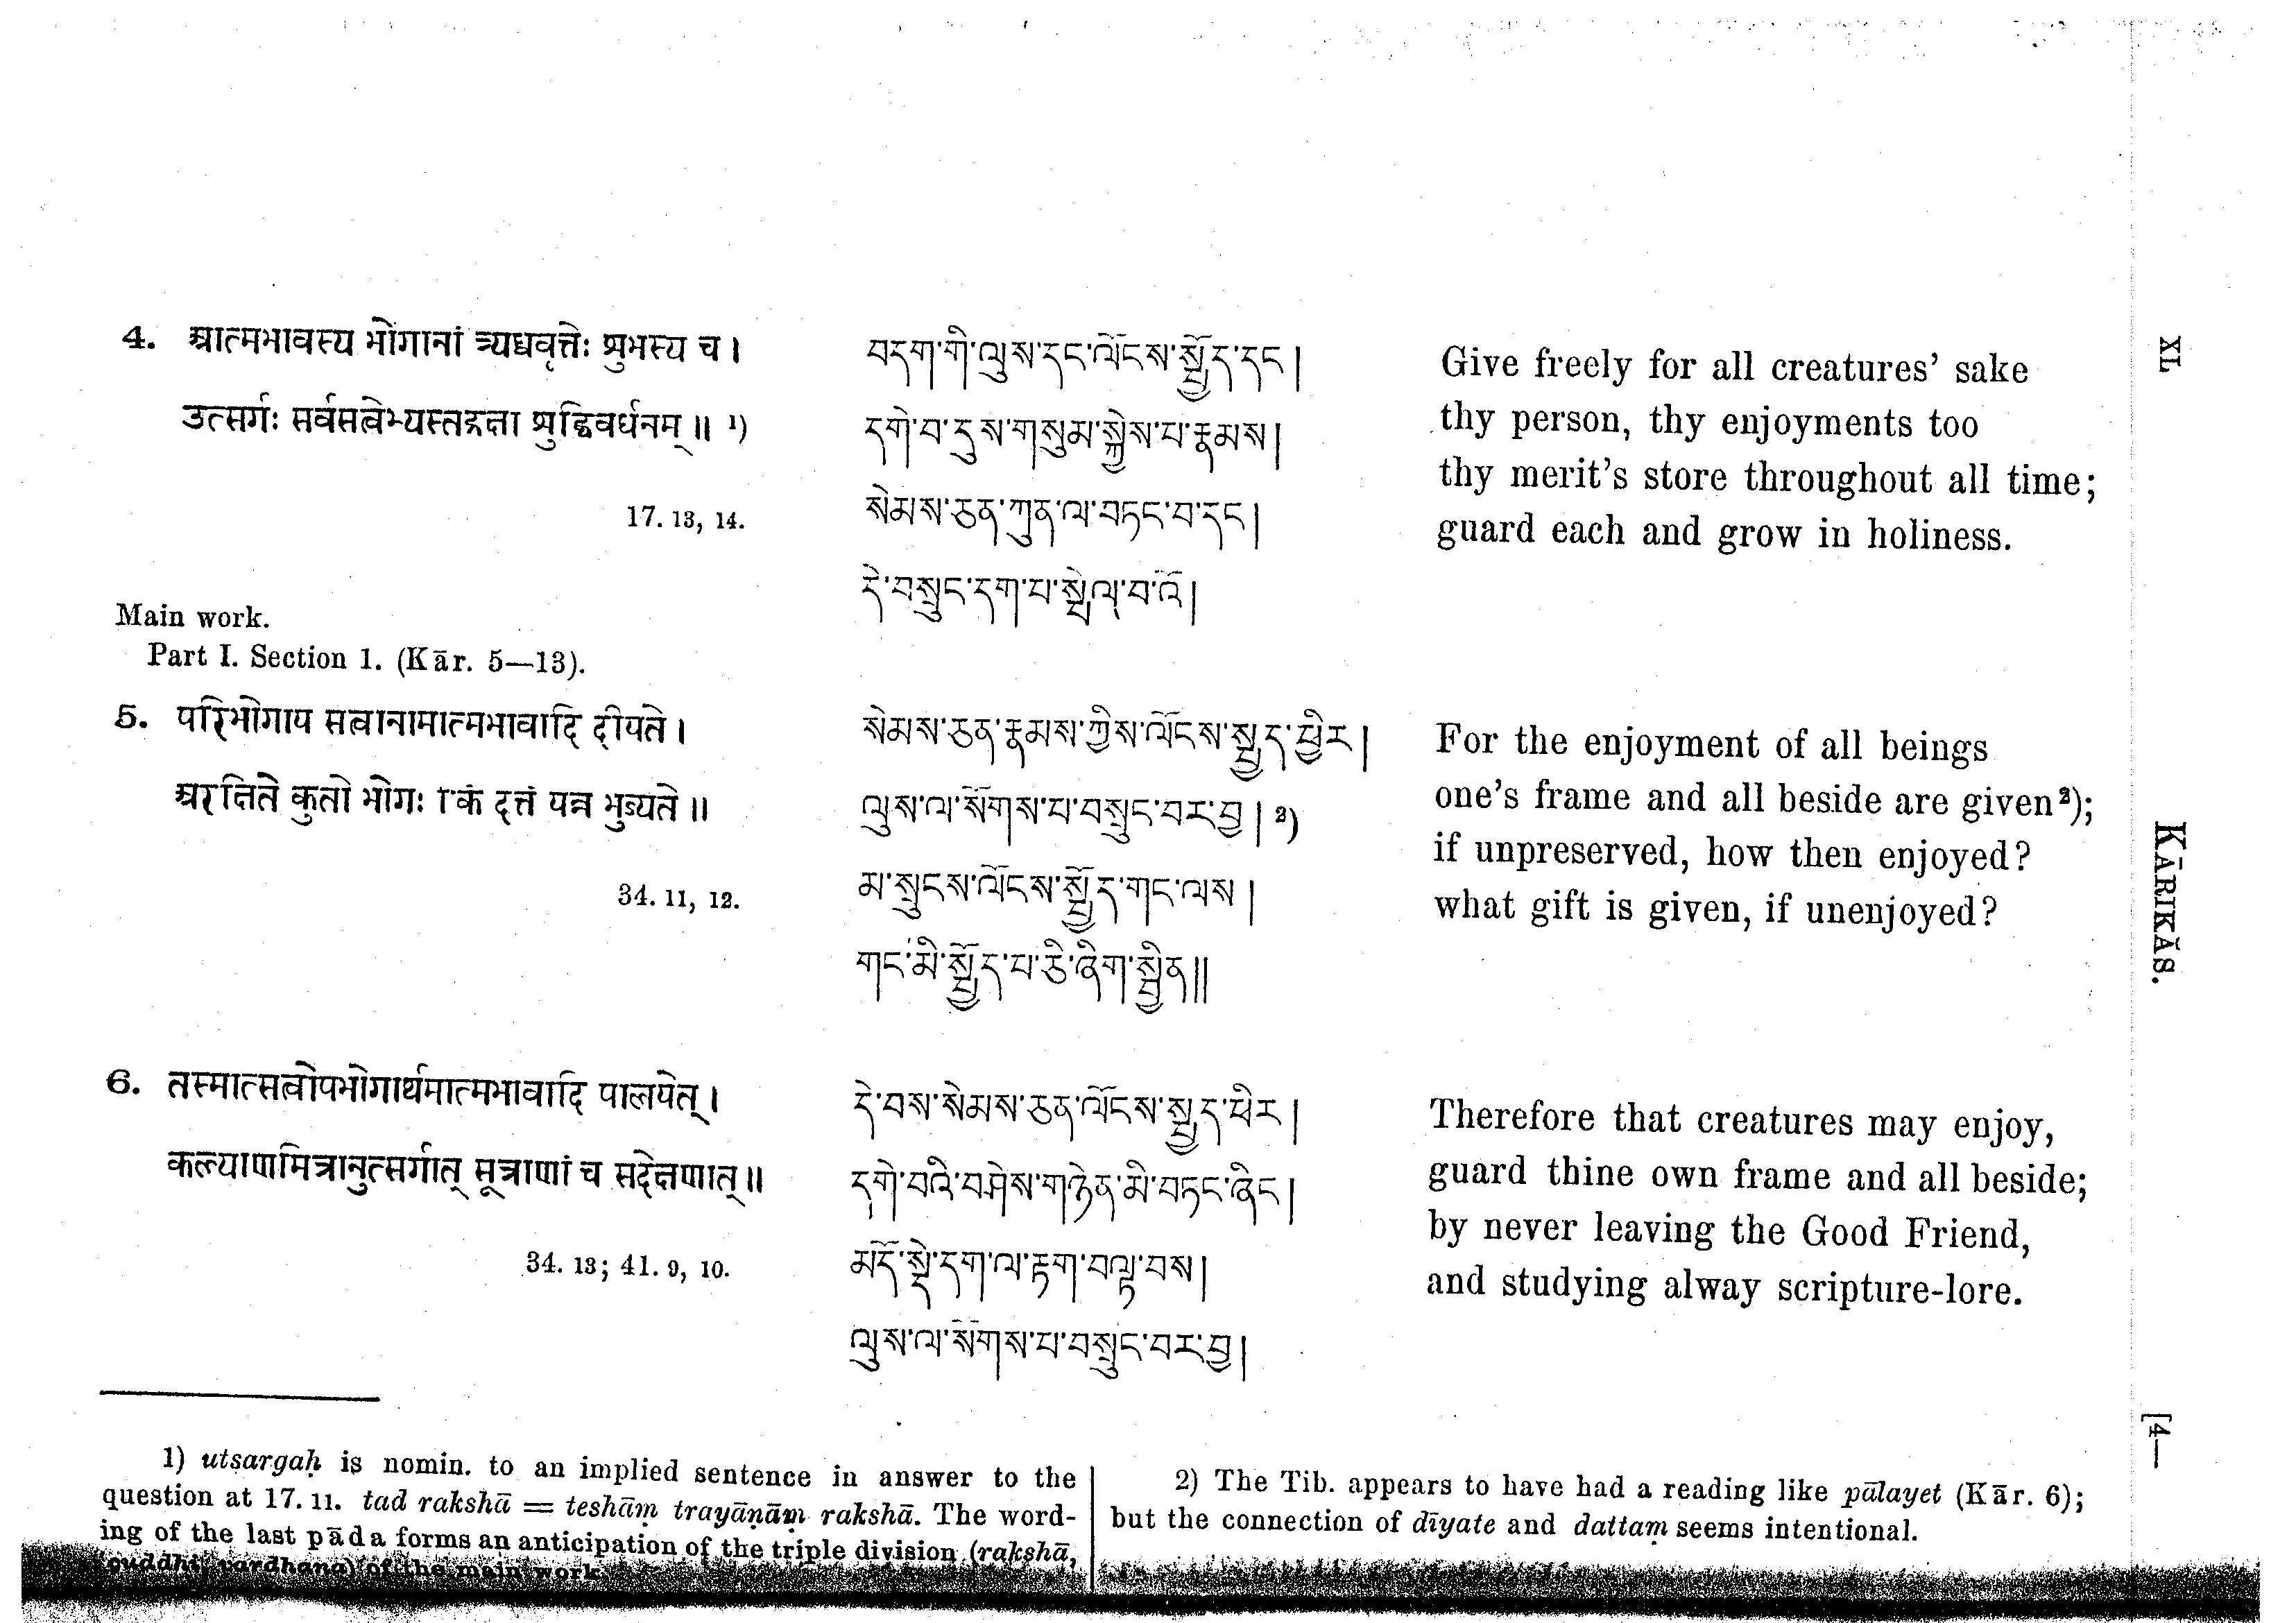 4. आत्मभावस्य भोगानां त्र्यध्ववृत्तेः शुभस्य च ।
उत्सर्गः सर्वसत्वेभ्यस्तद्रक्षा शुद्धिवर्धनम् ॥ ¹)
17. 13, 14.
བདག་གི་ལུས་དང་ལོངས་སྤྱོད་དང །
དགེ་བ་དུས་གསུམ་སྐྱེས་པ་རྣམས །
སེམས་ཅན་ཀུན་ལ་བཏང་བ་དང །
དེ་བསྲུང་དག་པ་སྤེལ་བ་འོ །
Give freely for all creatures’ sake
thy person, thy enjoyments too
thy merit’s store throughout all time;
guard each and grow in holiness.
Main work.
Part I. Section 1. (Kār. 5—13).
5. परिभोगाय सत्वानामात्मभावादि दीयते ।
अरक्षिते कुतो भोगः किं दत्तं यन्न भुज्यते ॥
34. 11, 12.
སེམས་ཅན་རྣམས་ཀྱིས་ལོངས་སྤྱད་ཕྱིར །
ལུས་ལ་སོགས་པ་བསྲུང་བར་བྱ ། ²)
མ་སྲུངས་ལོངས་སྤྱོད་གང་ལས །
གང་མི་སྤྱོད་པ་ཅི་ཞིག་སྦྱིན །།
For the enjoyment of all beings
one’s frame and all beside are given²);
if unpreserved, how then enjoyed?
what gift is given, if unenjoyed?
6. तस्मात्सत्वोपभोगार्थमात्मभावादि पालयेत् ।
कल्याणमित्रानुत्सर्गात् सूत्राणां च सदेक्षणात् ॥
34. 13; 41. 9, 10.
དེ་བས་སེམས་ཅན་ལོངས་སྤྱད་ཕིར །
དགེ་བའི་བཤེས་གཉེན་མི་བཏང་ཞིང །
མདོ་སྡེ་དག་ལ་རྟག་བལྟ་བས །
ལུས་ལ་སོགས་པ་བསྲུང་བར་བྱ །
Therefore that creatures may enjoy,
guard thine own frame and all beside;
by never leaving the Good Friend,
and studying alway scripture-lore.
1) utsargaḥ is nomin. to an implied sentence in answer to the
question at 17. 11. tad rakshā = teshāṃ trayāṇāṃ rakshā. The word-
ing of the last pāda forms an anticipation of the triple division (rakshā,
çuddhi, vardhana) of the main work.
2) The Tib. appears to have had a reading like pālayet (Kār. 6);
but the connection of dīyate and dattaṃ seems intentional.
XL
KĀRIKĀS.
[4—